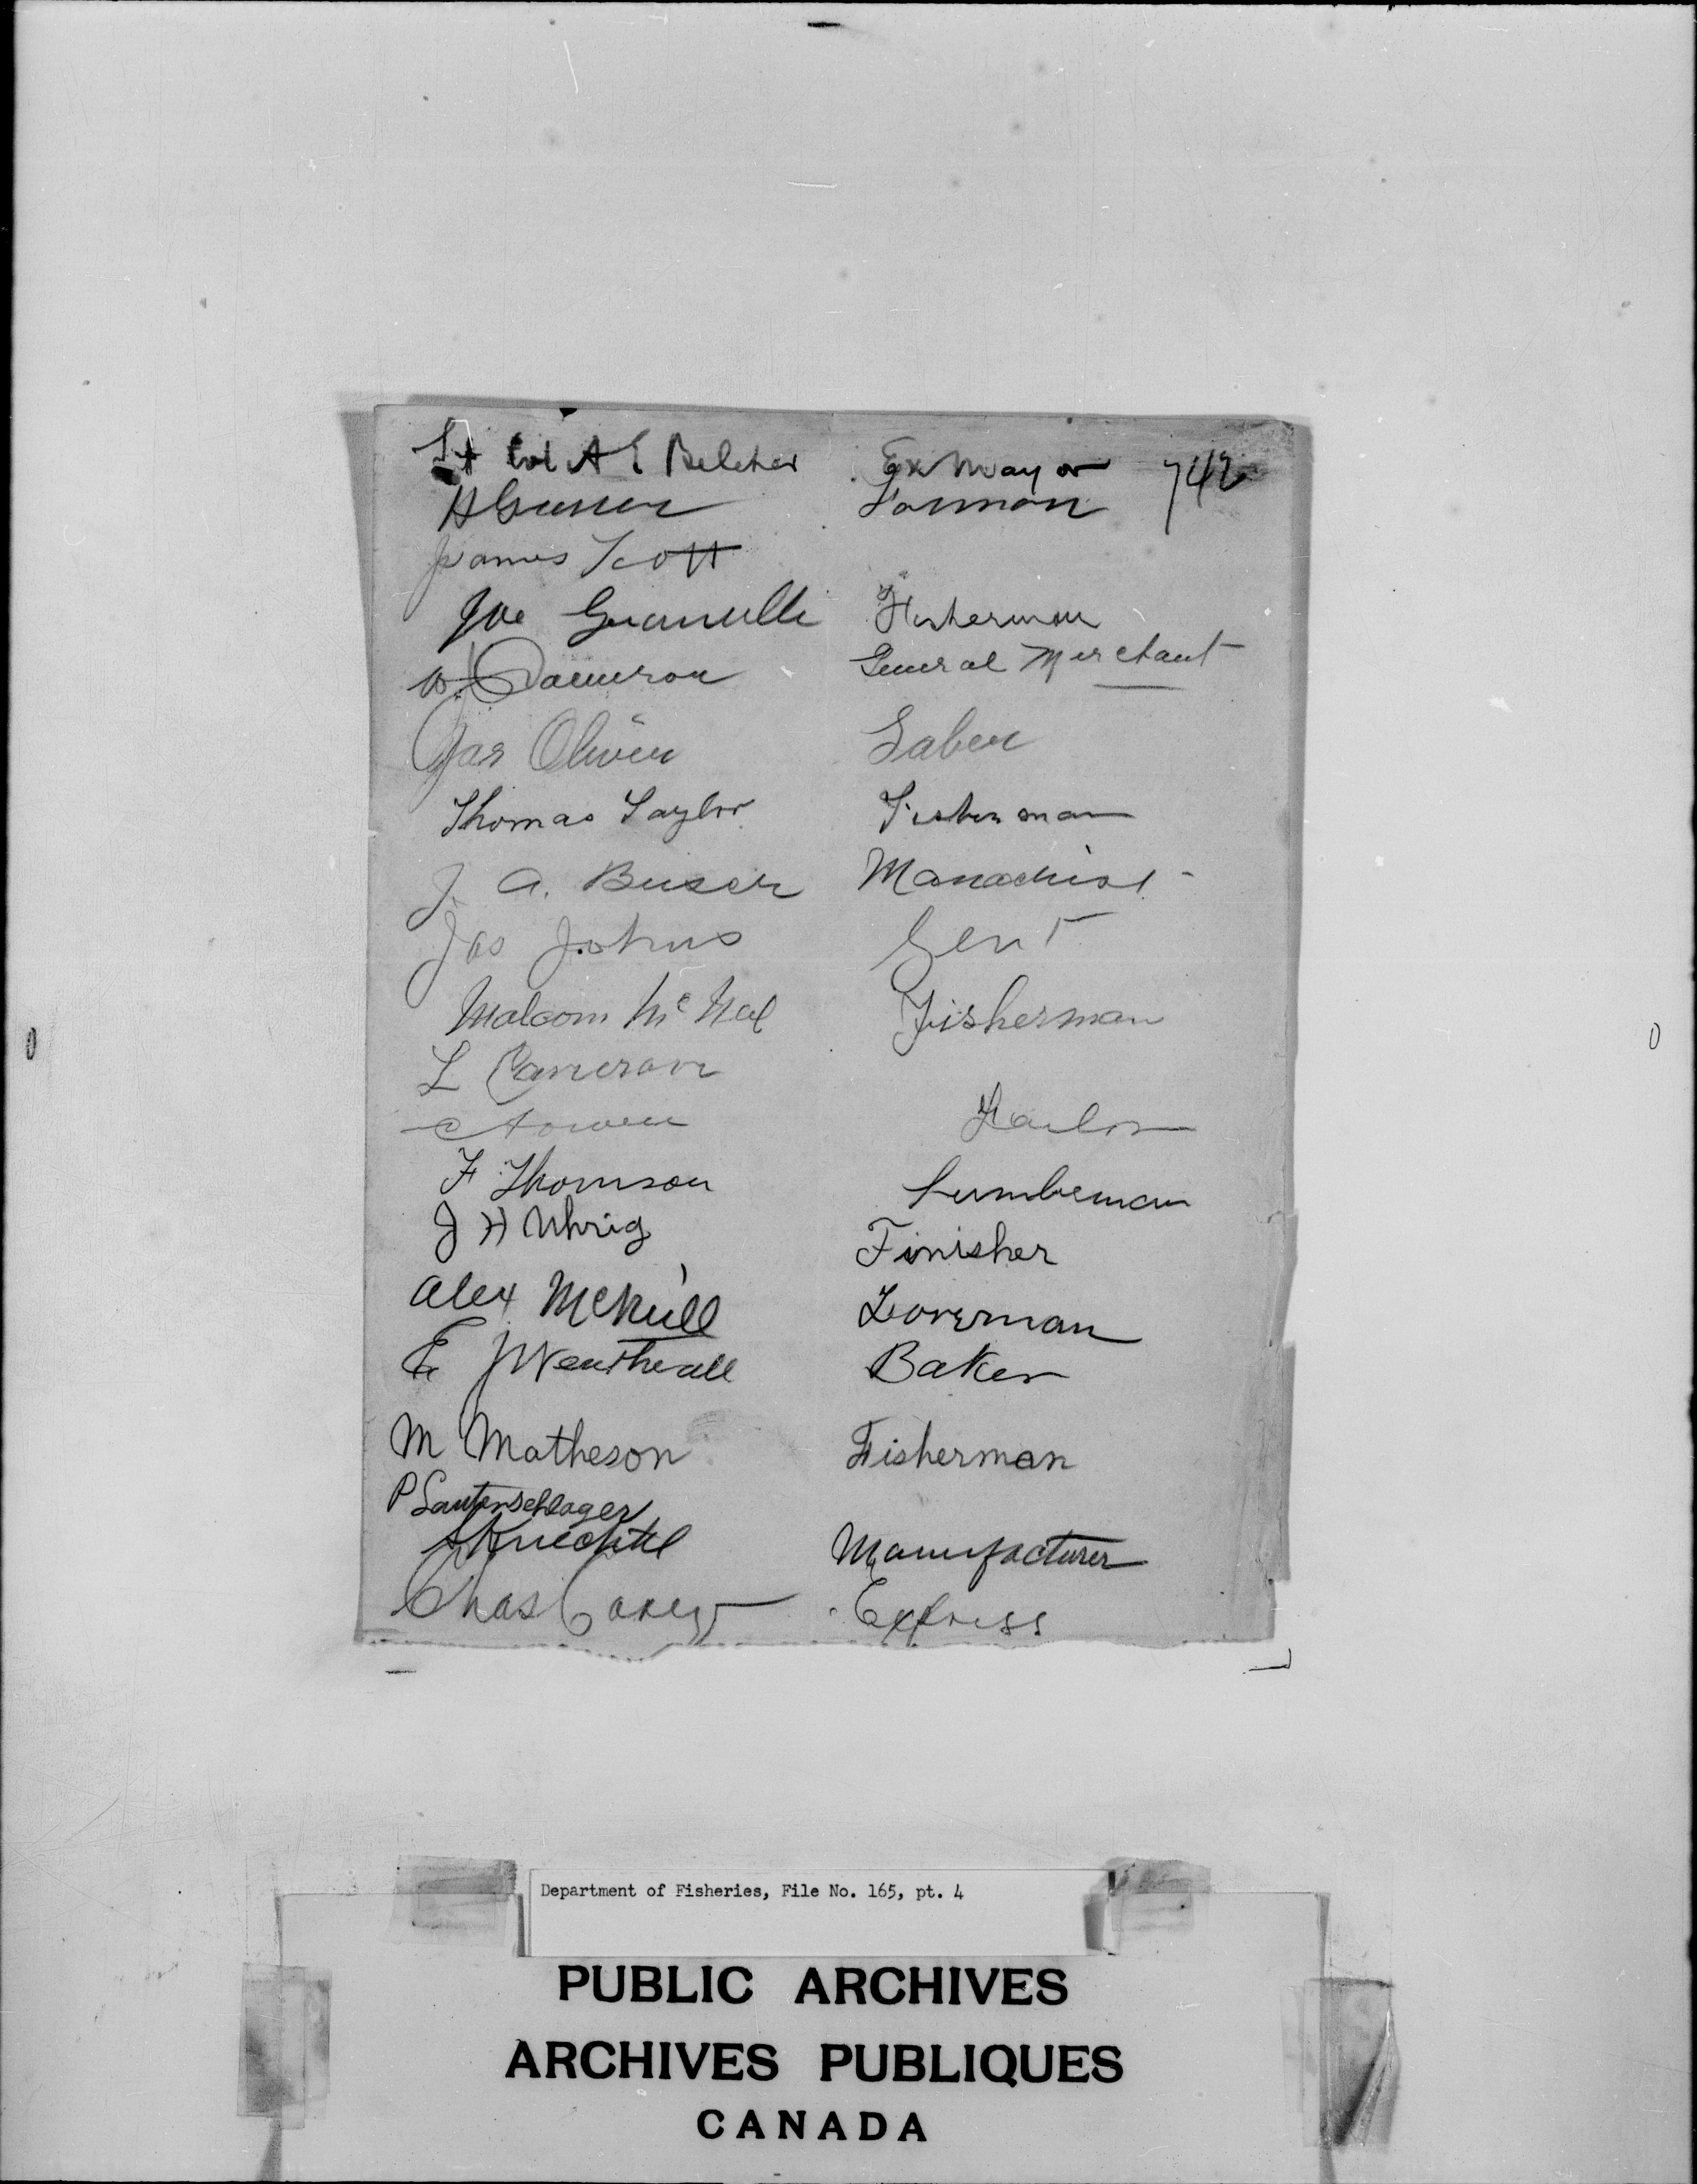 Lt Col A E Belcher Ex Mayor 742
Forman
James Scott
Joe Granville Fisherman
W J Cameron General Merchant
Jas Oliver Laber
Thomas Taylor Fisherman
J. A. Buser
Jas Johns Gent
Malcom McNeil Fisherman
L Cameron
F Thomson Lumbeman
J H Uhrig Finisher
Alex McNeill
E J Weatherall Baker
M Matheson Fisherman
P Lautenschlager
Knechtel Manufacturer
Chas Carey Express
Department of Fisheries, File No. 165, pt. 4
PUBLIC ARCHIVES
ARCHIVES PUBLIQUES
CANADA